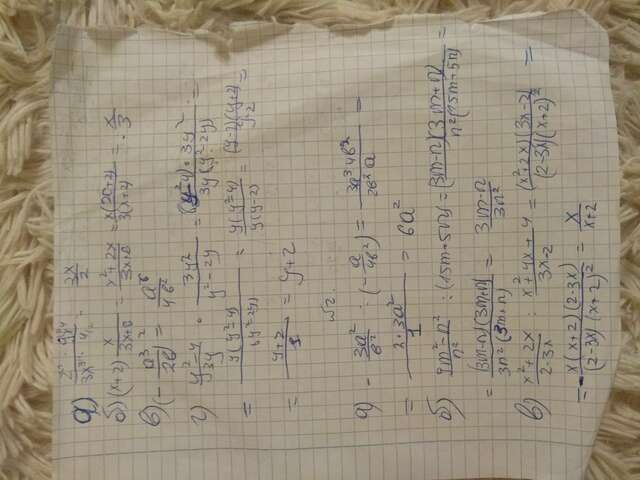 а)
б) (x+2) · x/3x+6 = x²+2x/3x+6 = x(x+2)/3(x+2) = x/3
в) (- a³/2b)² = a⁶/4b²
г) y²-4/3y · 3y²/y²-2y = (y²-4)·3y²/3y(y²-2y) =
= y(y²-4)/(y²-2y) = y(y²-4)/y(y-2) = (y-2)(y+2)/y-2 =
= y+2/1 = y+2
№2.
а) - 3a²/b² : (- a/4b²) = 3a³4b²/2b²a =
= 2·3a²/1 = 6a²
б) 9m²-n²/n² : (15m+5n) = (3m-n)(3m+n)/n²(15m+5n) =
= (3m-n)(3m+n)/3n²(3m+n) = 3m-n/3n²
в) x²+2x/2-3x : x²+4x+4/3x-2 = (x²+2x)(3x-2)/(2-3x)(x+2)² =
= - x(x+2)(2-3x)/(2-3x)(x+2)² = x/x+2